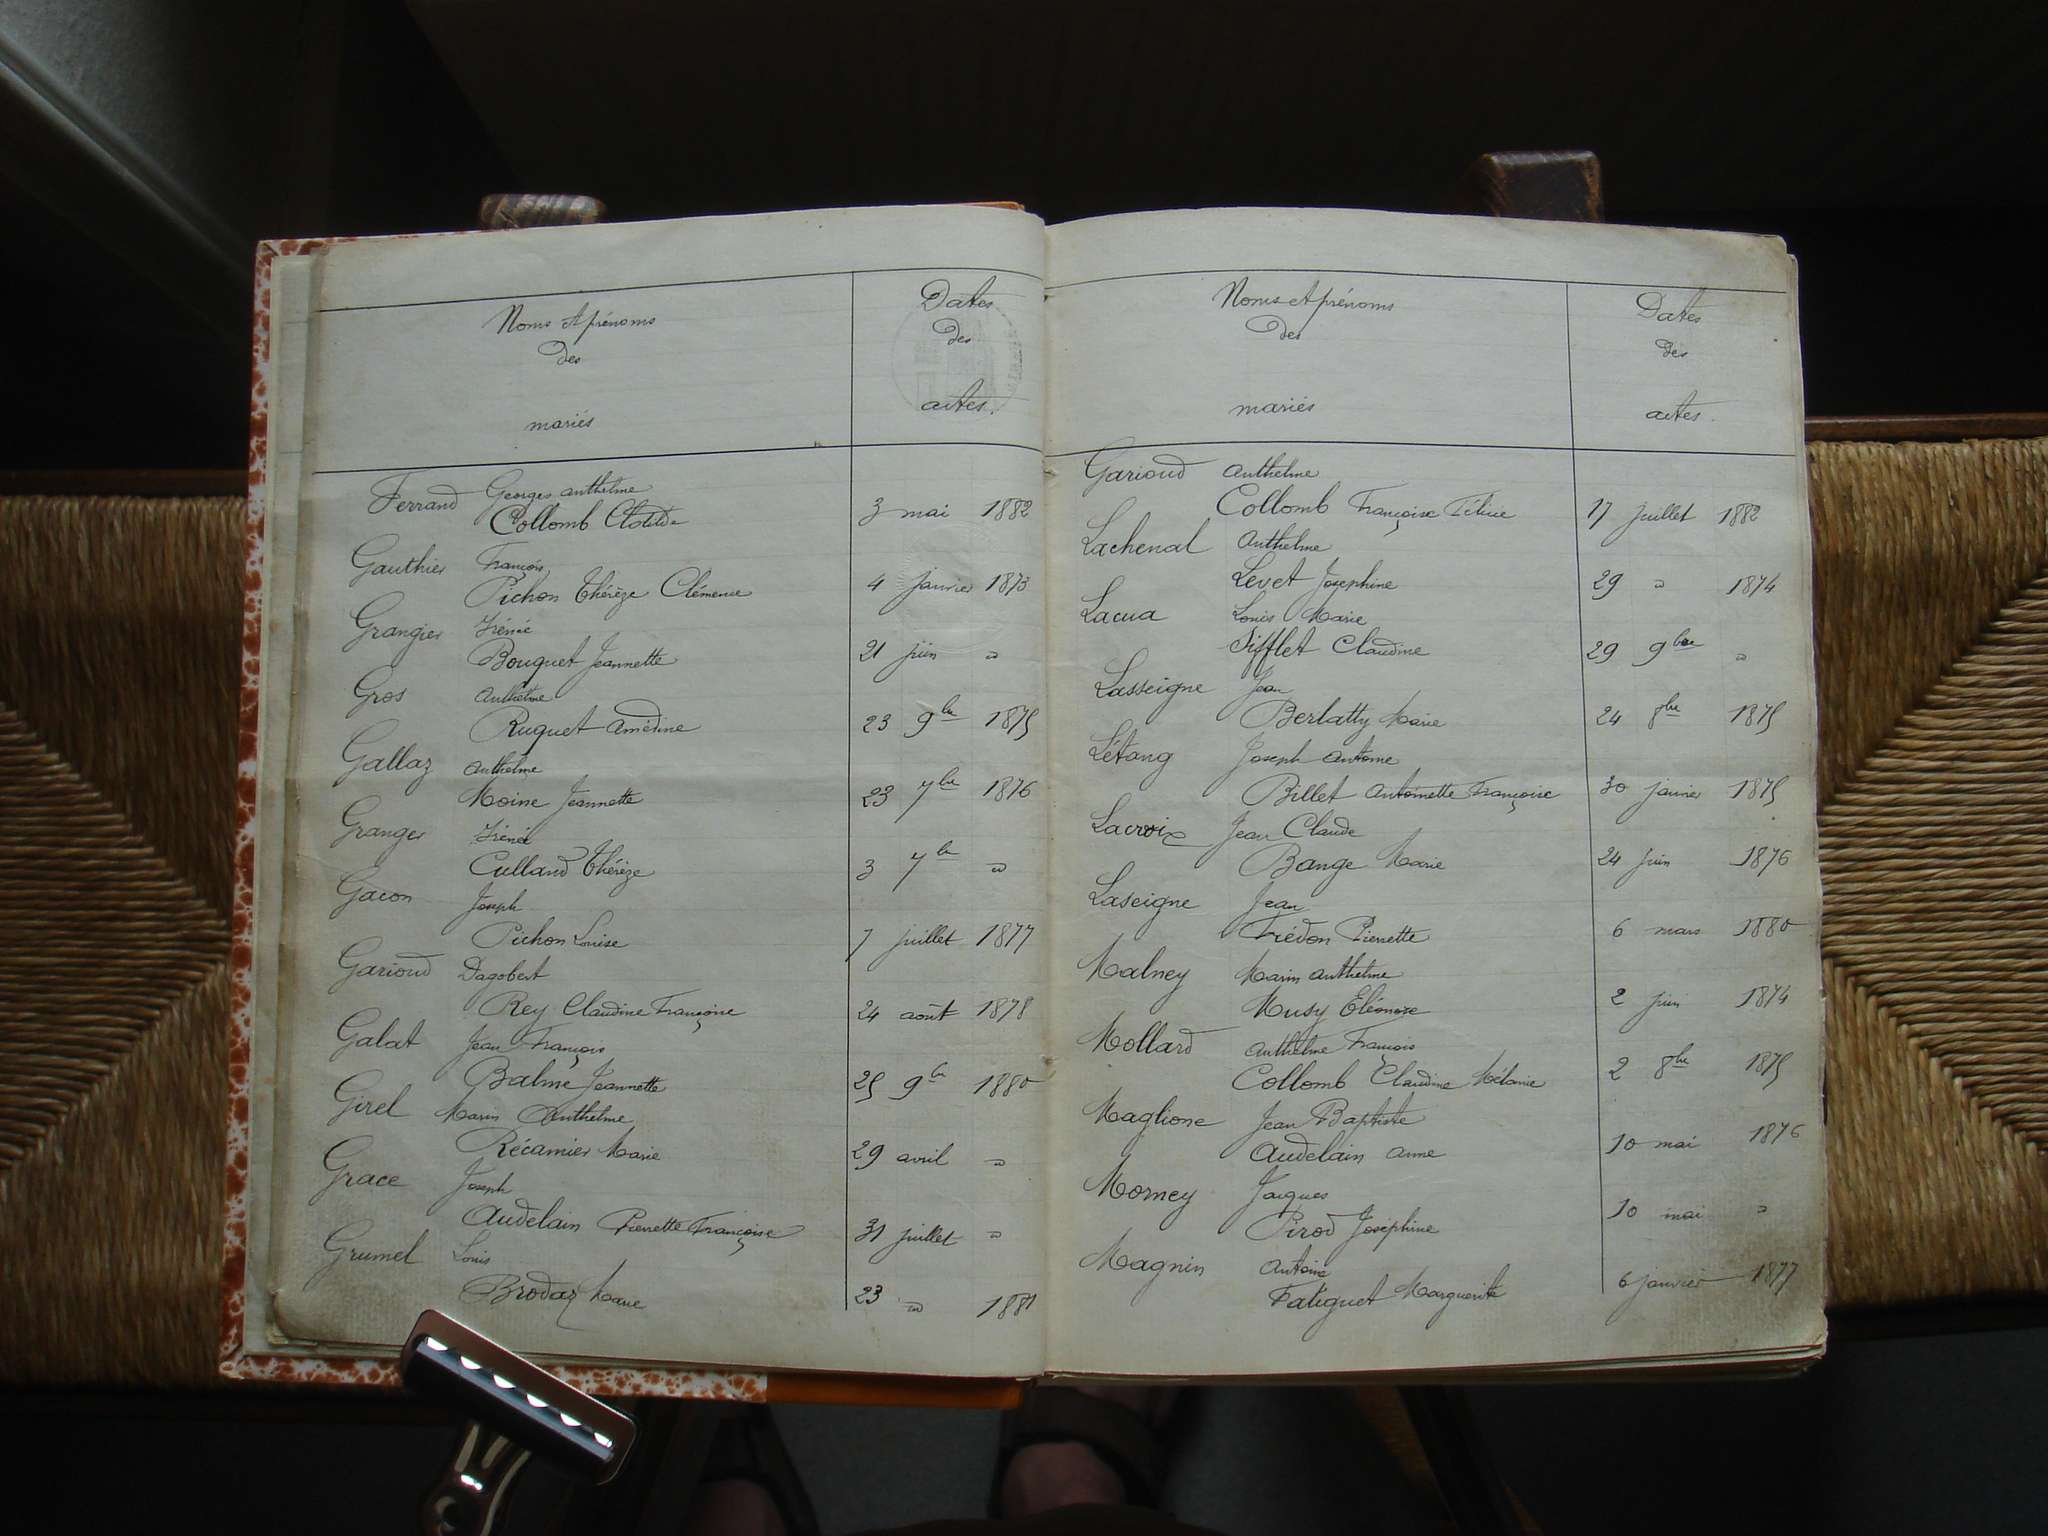 Noms et prénoms
des
mariés
Dates
des
actes.
Ferrand Georges Anthelme
Collomb Clotilde 3 mai 1882
Gauthier François
Pichon Thérèze Clémence 4 janvier 1873
Grangier Irénée
Bouquet Jeannette 21 juin "
Gros Anthelme
Ruquet Amédine 23 9bre 1875
Gallaz Anthelme
Moine Jeannette 23 7bre 1876
Granger Irénée
Culland Thérèze 3 7bre "
Gacon Joseph
Pichon Louise 7 juillet 1877
Garioud Dagobert
Rey Claudine Françoise 24 août 1878
Galat Jean François
Balme Jeannette 25 9bre 1880
Girel Marin Anthelme
Récamier Marie 29 avril "
Grace Joseph
Audelain Pierrette Françoise 31 juillet "
Grumel Louis
Brodaz Marie 23 " 1881
Noms et prénoms
des
mariés
Dates
des
actes.
Garioud Anthelme
Collomb Françoise 17 juillet 1882
Lachenal Anthelme
Levet Josephine 29 " 1874
Lacua Louis Marie
Sifflet Claudine 29 9bre "
Lasseigne Jean
Berlatty Marie 24 8bre 1875
Létang Joseph Antoine
Billet Antoinette Françoise 30 janvier 1875
Lacroix Jean Claude
Bange Marie 24 juin 1876
Laseigne Jean
Frédon Pierrette 6 mars 1880
Malney Marin Anthelme
Musy Eléonore 2 juin 1874
Mollard Anthelme François
Collomb Claudine Mélanie 2 8bre 1875
Maglione Jean Baptiste
Audelain Anne 10 mai 1876
Morney Jacques
Pirod Joséphine 10 mai "
Magnin Antoine
Fatiguet Marguerite 6 janvier 1877